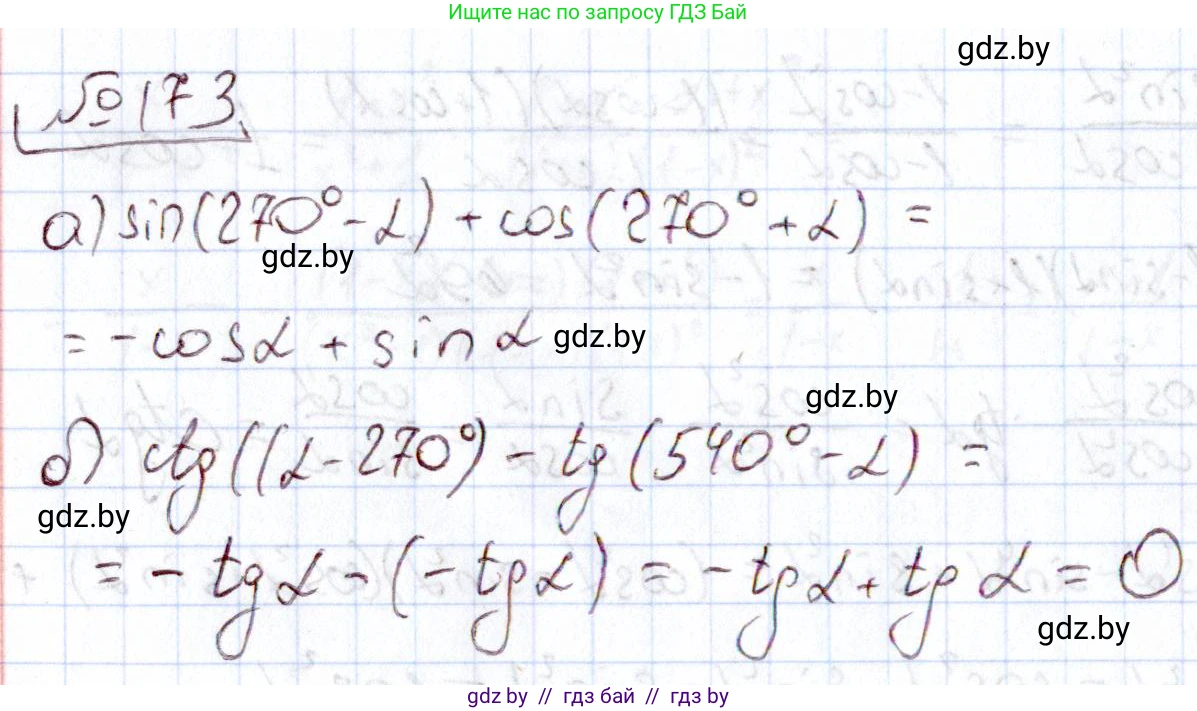 Ищите нас по запросу ГДЗ Бай
gdz.by
№ 173
а) sin(270° - α) + cos(270° + α) =
gdz.by
= - cosα + sin α
gdz.by
gdz.by
б) ctg((α - 270°) - tg(540° - α) =
gdz.by
= - tgα - (- tgα) = - tgα + tg α = 0
gdz.by
gdz.by // гдз бай // гдз by